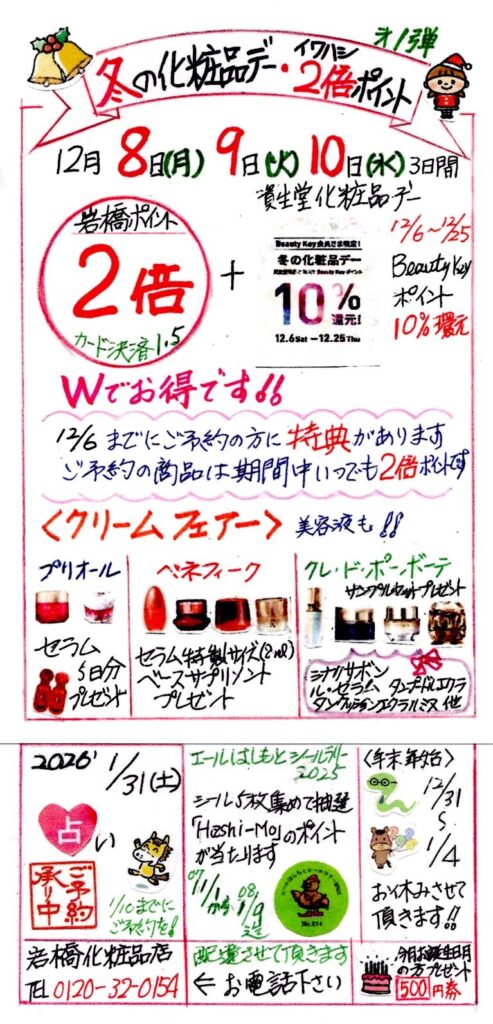 オ1弾
冬の化粧品デー・イワハシ2倍ポイント
12月8日(月)9日(火)10日(水)3日間
岩橋ポイント
2倍
カード決済1.5
+
資生堂化粧品デー
Beauty Key会員さま限定!
冬の化粧品デー
10%
還元!
12.6Sat ー 12.25Thu
12/6〜12/25
Beauty Key
ポイント
10%還元
Wでお得です!!
12/6までにご予約の方に特典があります
ご予約の商品は期間中いつでも2倍ポイントです
〈クリームフェアー〉美容液も!!
プリオール
セラム
5日分
プレゼント
ベネフィーク
セラム特製サイズ(2ml)
ベースサプリソント
プレゼント
クレ・ド・ポーボーテ
サンプルセットプレゼント
シナクサボン
ル・セラム
タンクッションエクラルミヌ 他
2026' 1/31(土)
占い
ご予約
承り中
1/10までに
ご予約を!
エールはしもとシールラリー
2025
シール5枚集めて抽選
「Hashi-Mo」のポイント
が当たります
07 1/1から 08 1/9迄
No.214
〈年末年始〉
12/31
〜
1/4
お休みさせて
頂きます!!
岩橋化粧品店
TEL 0120-32-0154
配達させて頂きます
← お電話下さい
今月お誕生日月
の方プレゼント
500円券